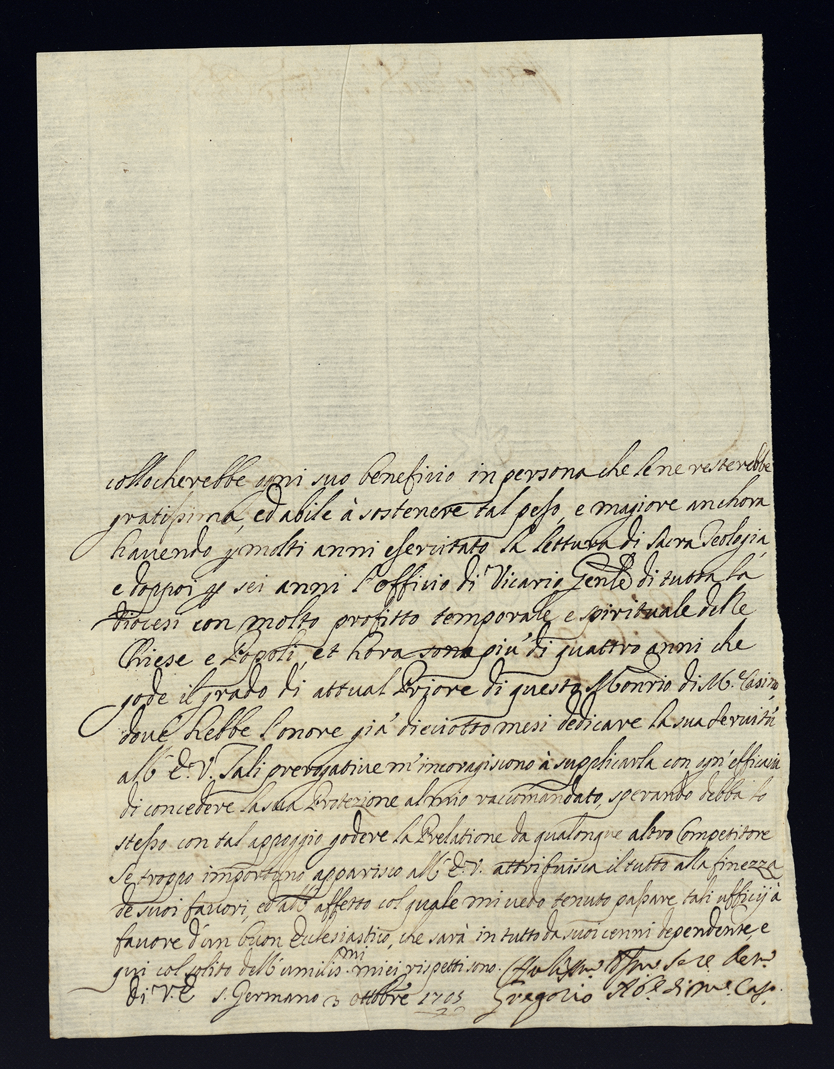 collocherebbe ogni suo beneficio in persona che le ne resterebbe
gratissima, ed abile à sostenere tal peso, e magiore anchora
havendo p molti anni esercitato la lettura di sacra Teologia,
e doppoi p sei anni l'officio di Vicario Genle di tutta la
Diocesi con molto profitto temporale, e spirituale delle
Chiese e Popoli, et hora sono più di quattro anni che
gode il grado di attual Priore di questo Monrio di M. Casino
dove hebbe l'onore già dieciotto mesi dedicare la sua servitù
all' E.V. Tali prerogative m'incoragiscono à supplicarla con ogn'efficacia
di concedere la sua Protezione al mio raccomandato, sperando debba lo
stesso con tal appoggio godere la Prelatione da qualonque altro Competitore
se troppo importuno apparisco all' E.V. attribuisca il tutto alla finezza
de suoi favori, ed all' affetto col quale mi vedo tenuto passare tali ufficij à
favore d'un buon Eclesiastico, che sarà in tutto da suoi cenni dependente, e
qui col solito dell' umilissmi miei rispetti sono.
di V.E. s. Germano 3 ottobre 1705 Gregorio Ab.e di M.e Cas.o